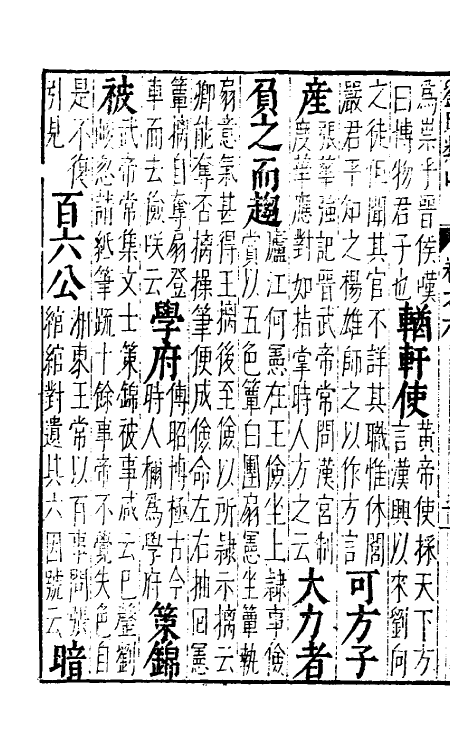 為祟乎晉侯嘆
曰博物君子也
輶軒使
黃帝使採天下方
言漢興以來劉向
之徒但聞其官不詳其職惟休閣
嚴君平知之楊雄師之以作方言
可方子
產
張華強記晉武帝常問漢宮制
度華應對如指掌時人方之云
大力者
負之而趨
廬江何憲在王儉坐上隸事儉
賞以五色簟白團扇憲坐簟執
扇意氣甚得王摛後至儉以所隸示摛云
卿能奪否摛操筆便成儉命左右抽回憲
簟摛自奪扇登
車而去儉咲云
學府
傅昭博極古今
時人穪為學府
策錦
被
武帝常集文士策錦被事咸云已罄劉
峻忽請紙筆疏十餘事帝不覺失色自
是不復
引見
百六公
湘東王常以百事問張
綰綰對遺其六因號云
暗